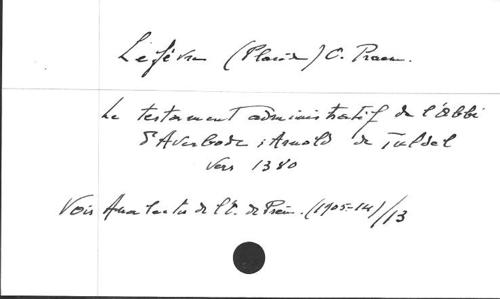 Lefèvre (Placide) O. Praem.
Le testament administratif de l'Abbé
d'Averbode : Arnold de Tuldel
vers 1380
Voir Analectes de l'O. de Prém. (1905-14)/13